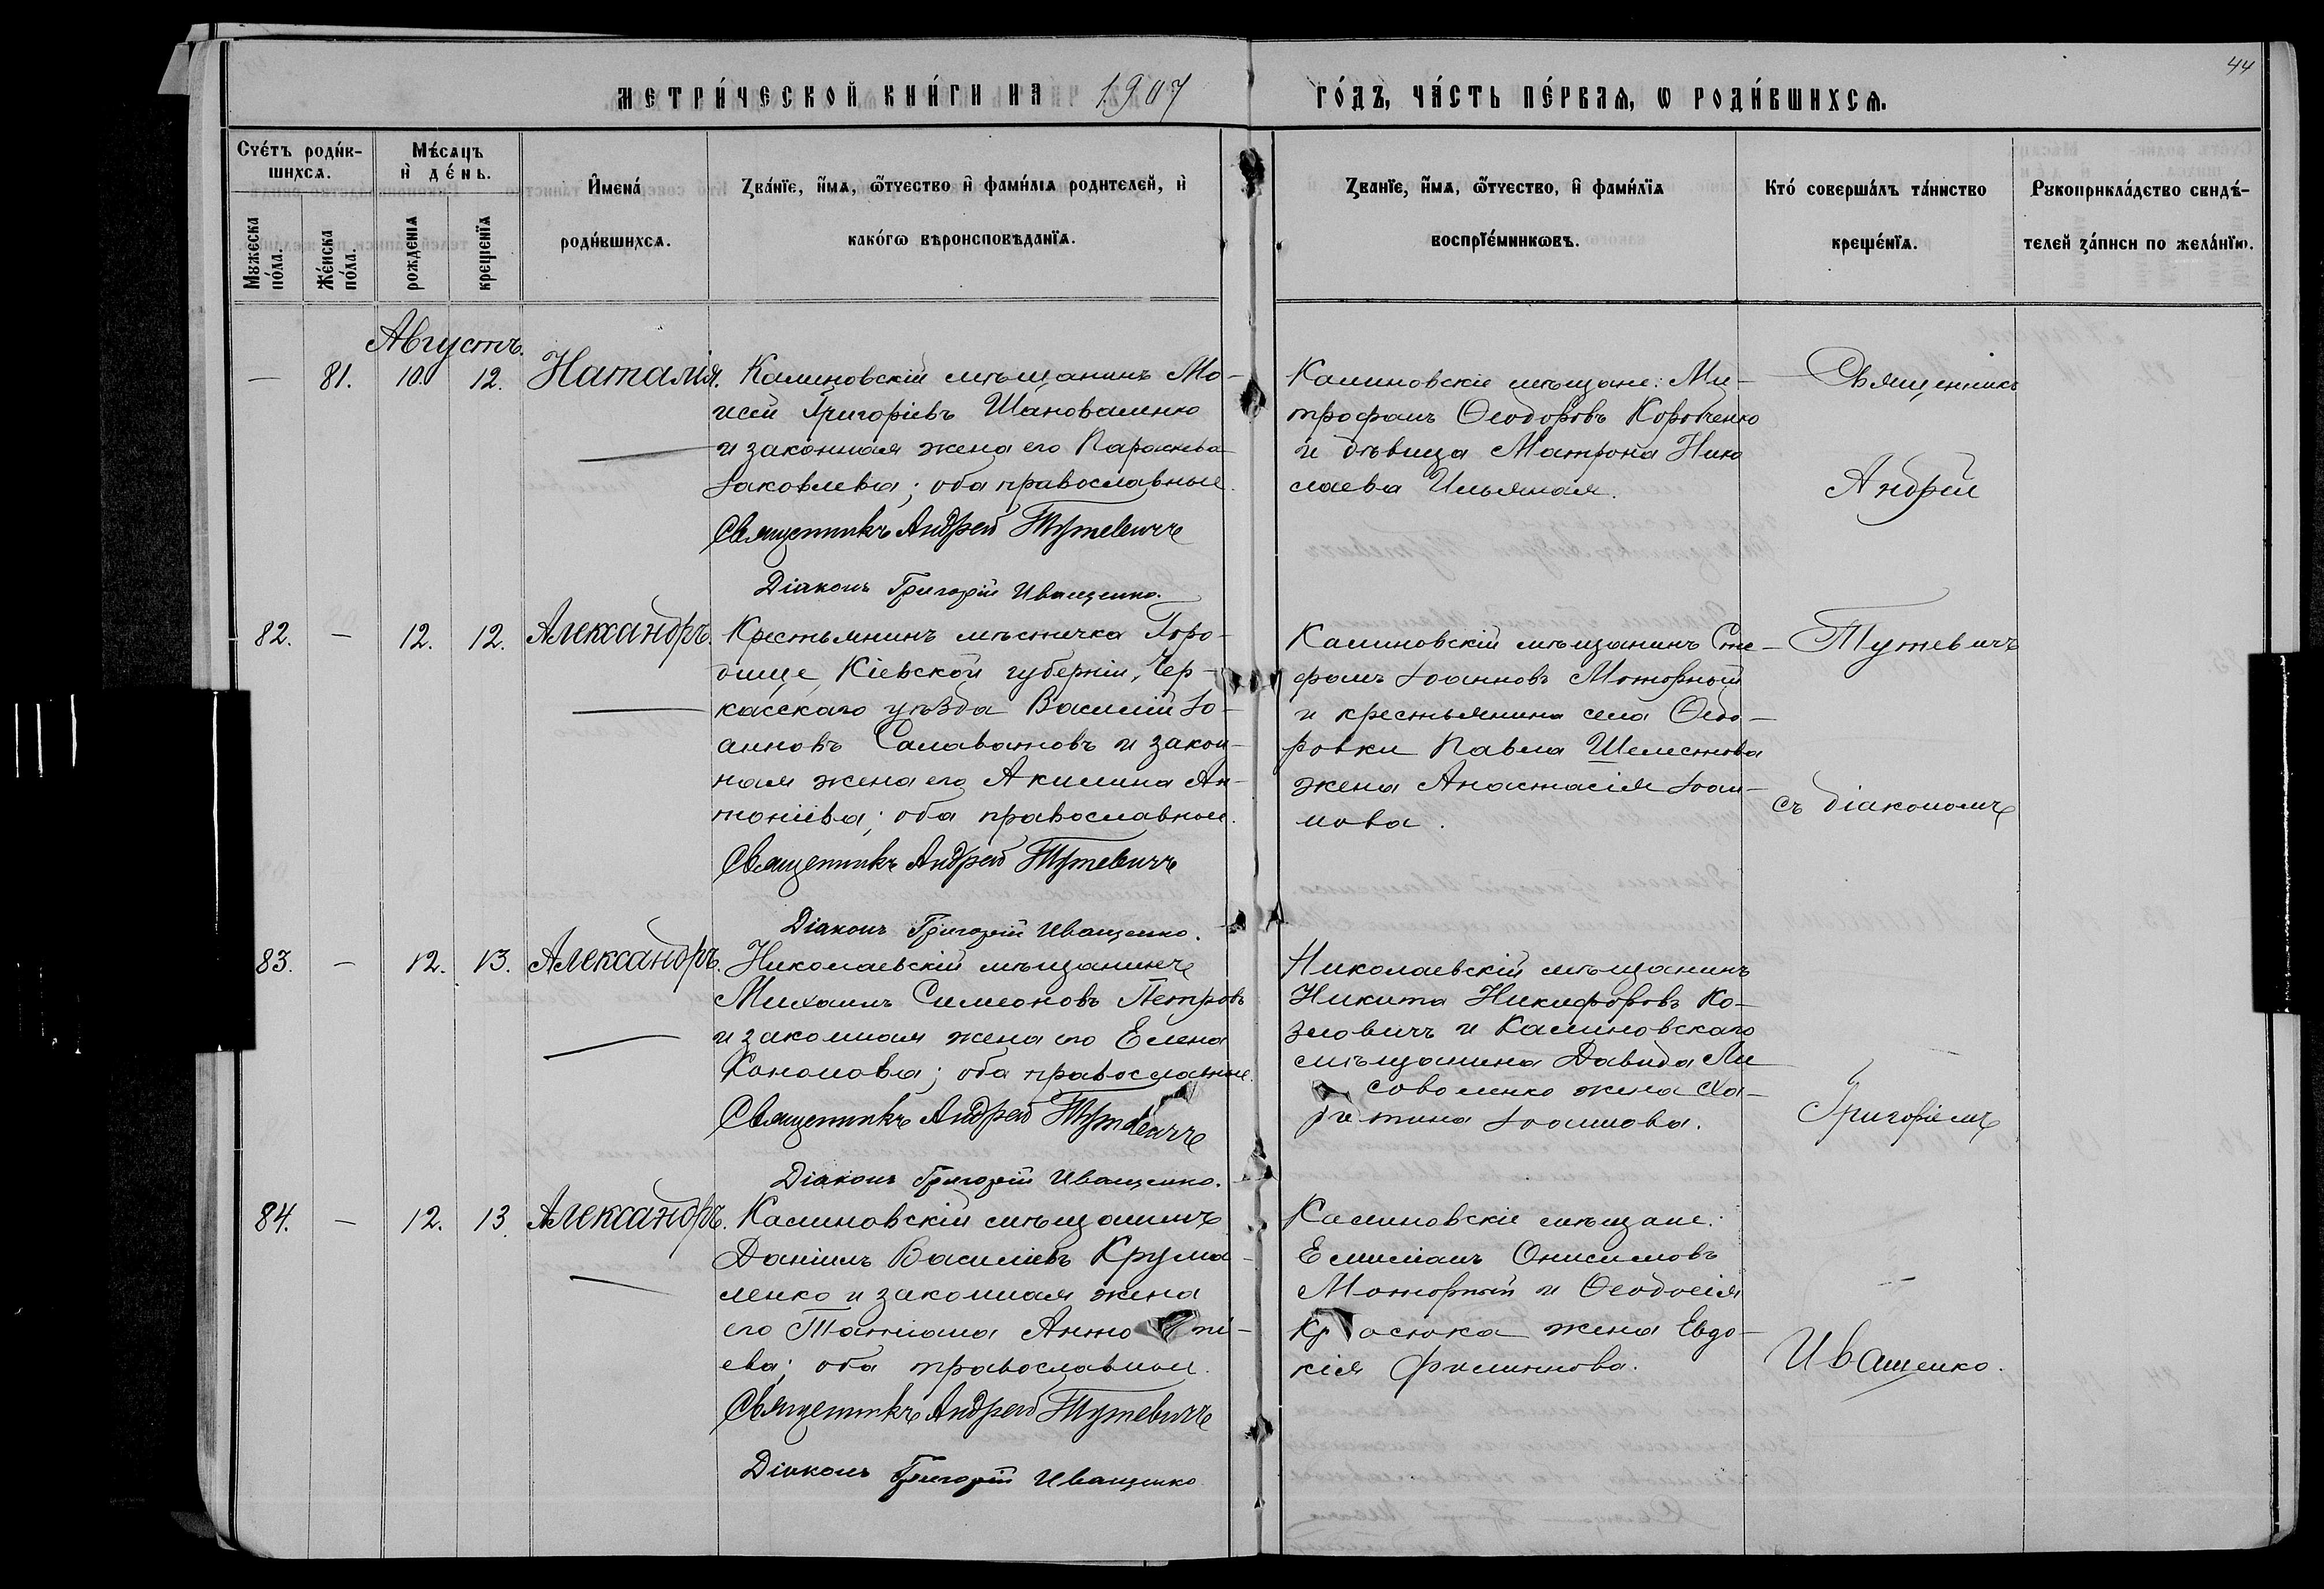 44
МЕТРИ́ЧЕСКОЙ КНИ́ГИ НА 1907 ГО́ДЪ, ЧА́СТЬ ПЕ́РВАѦ, Ѡ РОДИ́ВШИХСѦ.
Сче́тъ роди́в-
шихсѧ.
Мужеска по́ла.
Же́нска по́ла.
Мѣ́сѧцъ
и҆ де́нь.
рожденїѧ
крещенїѧ
И҆мена́
роди́вшихсѧ.
Зва́нїе, и҆́мѧ, ѻ҆́тчество и҆ фами́лїѧ родителей, и҆
како́гѡ вѣроисповѣданїѧ.
Званїе, и҆́мѧ, ѻ҆́тчество, и҆ фами́лїѧ
воспрїе́мникѡвъ.
Кто́ соверша́лъ та́инство
креще́нїѧ.
Рукоприкла́дство свидѣ́-
телей за́писи по жела́нїю.
Августъ.
— 81. 10. 12. Наталія.
Калиновскій мѣщанинъ Мо-
исей Григоріевъ Шаповаленко
и законная жена его Параскева
Іаковлева; оба православные.
Священникъ Андрей Тутевичъ
Діаконъ Григорій Иващенко.
Калиновскіе мѣщане: Ми-
трофанъ Ѳеодоровъ Коротенко
и дѣвица Матрона Нико
лаева Ильяная.
82. — 12. 12. Александръ.
Крестьянинъ мѣстечка Горо-
дище, Кіевской губерніи, Чер-
касскаго уѣзда Василій Іо-
анновъ Салаватовъ и закон-
ная жена его Акилина Ан-
тоніева; оба православные.
Священникъ Андрей Тутевичъ
Діаконъ Григорій Иващенко.
Калиновскій мѣщанинъ Сте-
фанъ Іоанновъ Моторный
и крестьянина села Ѳедо-
ровки Павла Шелестова
жена Анастасія Іоан-
нова.
83. — 12. 13. Александръ.
Николаевскій мѣщанинъ
Михаилъ Симеоновъ Петровъ
и законная жена его Елена
Кононова; оба православные.
Священникъ Андрей Тутевичъ
Діаконъ Григорій Иващенко.
Николаевскій мѣщанинъ
Никита Никифоровъ Ко-
зловичъ и Калиновскаго
мѣщанина Давида Ли
соволенко жена Ха-
ритина Іоаннова.
84. — 12. 13. Александръ.
Калиновскій мѣщанинъ
Даніилъ Василіевъ Крума-
ленко и законная жена
его Татіана
ева; оба православные.
Священникъ Андрей Тутевичъ
Діаконъ Григорій Иващенко
Калиновскіе мѣщане:
Емиліанъ Онисимовъ
Моторный и Ѳеодосія
жена Евдо-
кія Филиппова.
Священникъ
Андрей
Тутевичъ
съ діакономъ
Григоріемъ
Иващенко.